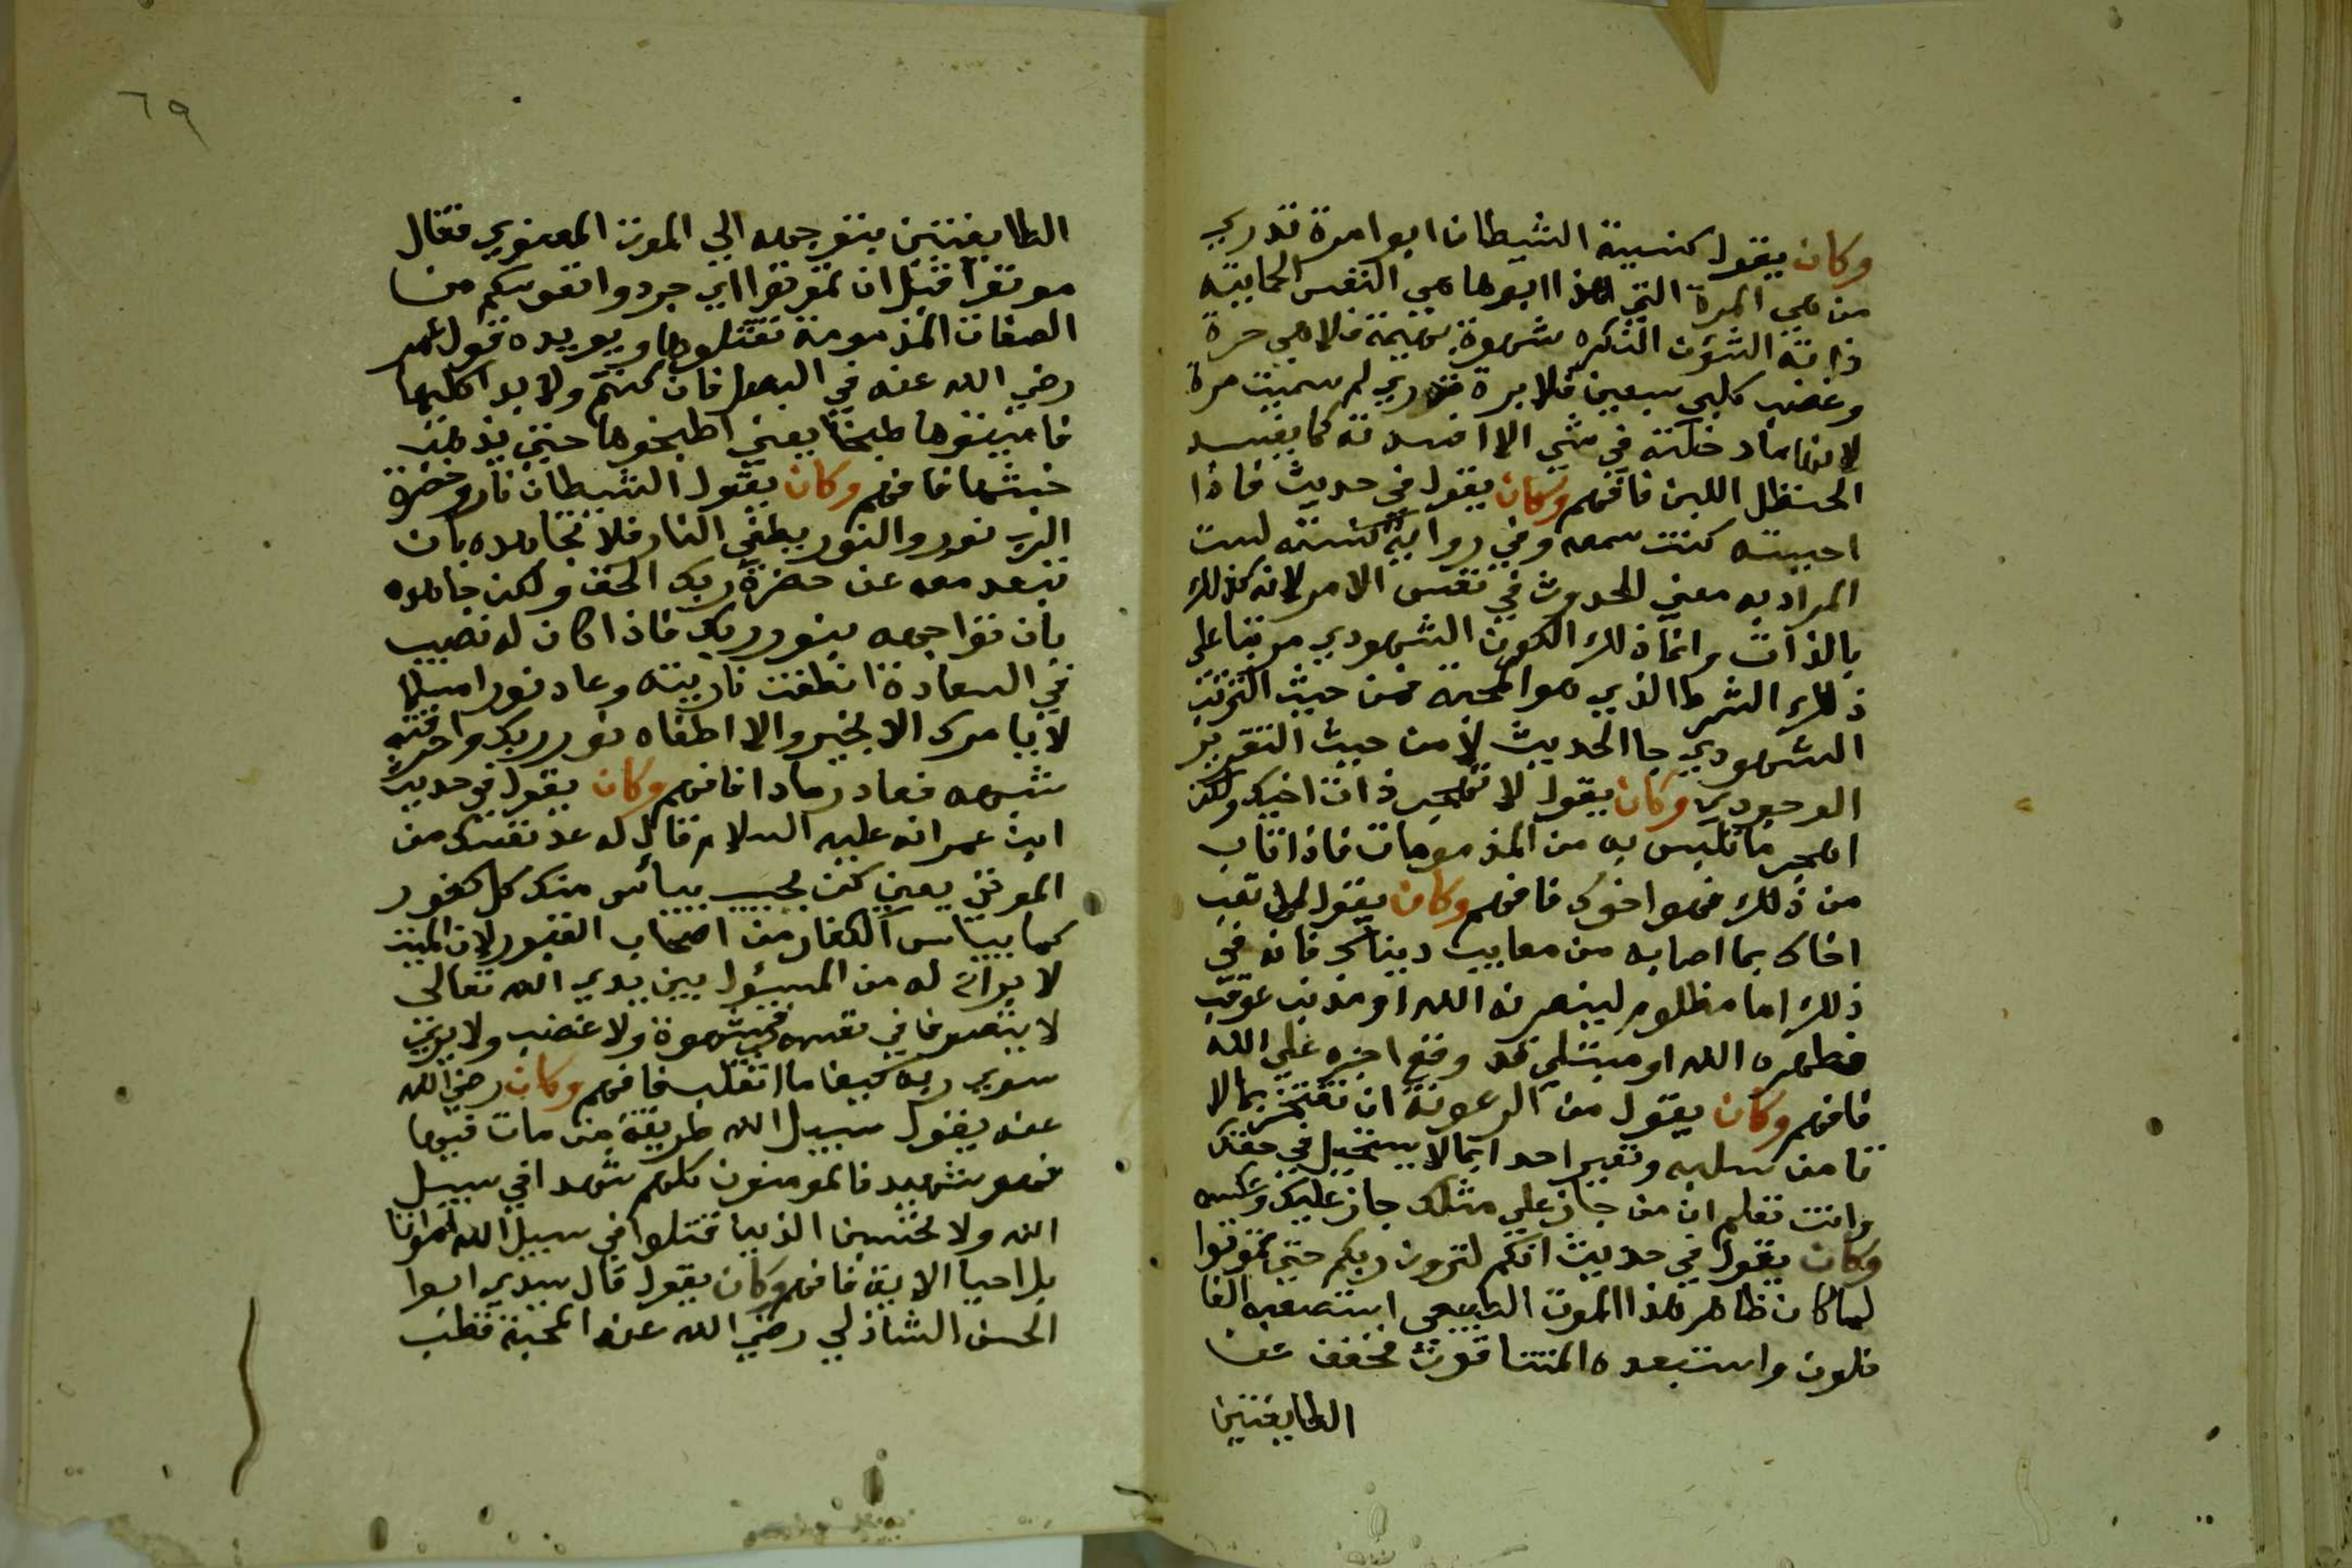 وكان يقول كنيية الشيطان ابوا مرة تدري
من هي المرة التي هذا ابوها هي النفس الحابيه
ذاته الشؤن النكره شهوة بهيمة فلا هي حرة
وغضب كلبي سبعين فلا برة تدري لم سميت مرة
لانها ما دخلت في شي الا افسدته كما يفسد
الحنظل اللبن فافهم وكان يقول في حديث فاذا
احببته كنت سمعه وفي رواية كنته ليت
المراد به معني الحدوث في نفس الامر لانه كذلك
بالذات وانما ذلك الكون الشهودي مرتبا علي
ذلك الشرط الذي هو المحبه فمن حيث الترتيب
الشهودي جا الحديث لا من حيث التقرير
الوجودي وكان يقول لا تهجر ذات اخيك ولكن
اهجر ما تلبس به من المذمومات فاذا تاب
من ذلك فهوا خوك فافهم وكان يقول لا تعب
اخاك بما اصابه من معايب ديناك فانه في
ذلك اما مظلوم لينصرنه الله او مذنب عوقب
فطهره الله او مبتلي قد وقع اجره علي الله
فافهم وكان يقول من الرعونة ان تفتخر بما لا
تامن سلبه وتعير احدا بما لا يستحيل في حقك
وانت تعلم ان من جاز علي مثلك جاز عليك وعكسه
وكان يقول في حديث انكم لترون ربكم حتي تموتوا
لما كان ظاهر هذا الموت الطبيعي استصعبه الغا
فلون واستبعده المشتاقون فخفف عن
الطايفتين
٦٩
الطايفتين بتوجهه الي الموت المعنوي فقال
موتوا قبل ان تموتوا اي جردوا نفوسكم من
الصفات المذمومة تقتلوها ويويده قول عمر
رضي الله عنه في البصل فان كنتم ولا بد اكليها
فاميتوها طبخا يعني اطبخوها حتي يذهب
خبثها فافهم وكان يقول الشيطان نار وحضرة
الرب نور والنور يطفي النار فلا تجاهده بان
تبعد معه عن حضرة ربك الحق ولكن جاهده
بان تواجهه بنور ربك فاذا كان له نصيب
في السعادة انطفت ناريته وعاد نورا مسلما
لا يامرك الا بخير والا اطفاه نور ربك واحرقته
شهبه فعاد رمادا فافهم وكان يقول في حديث
ابن عمر انه عليه السلام قال له عد نفسك من
الموتي يعني كن بحيث ييائس منك كل كفور
كما ييئاس الكفار من اصحاب القبور لان الميت
لا براح له من المسؤل بين يدي الله تعالي
لا يتصوفا في نفسه شهوة ولا غضب ولا يري
سوي ربه كيفما انقلب فافهم وكان رضي الله
عنه يقول سبيل الله طريقة من مات فيها
فهو شهيد فالمومنون كلهم شهدا في سبيل
الله ولا تحسبن الذين قتلوا في سبيل الله امواتا
بل احيا الاية فافهم وكان يقول قال سيدي ابوا
الحسن الشاذلي رضي الله عنه المحبة قطب